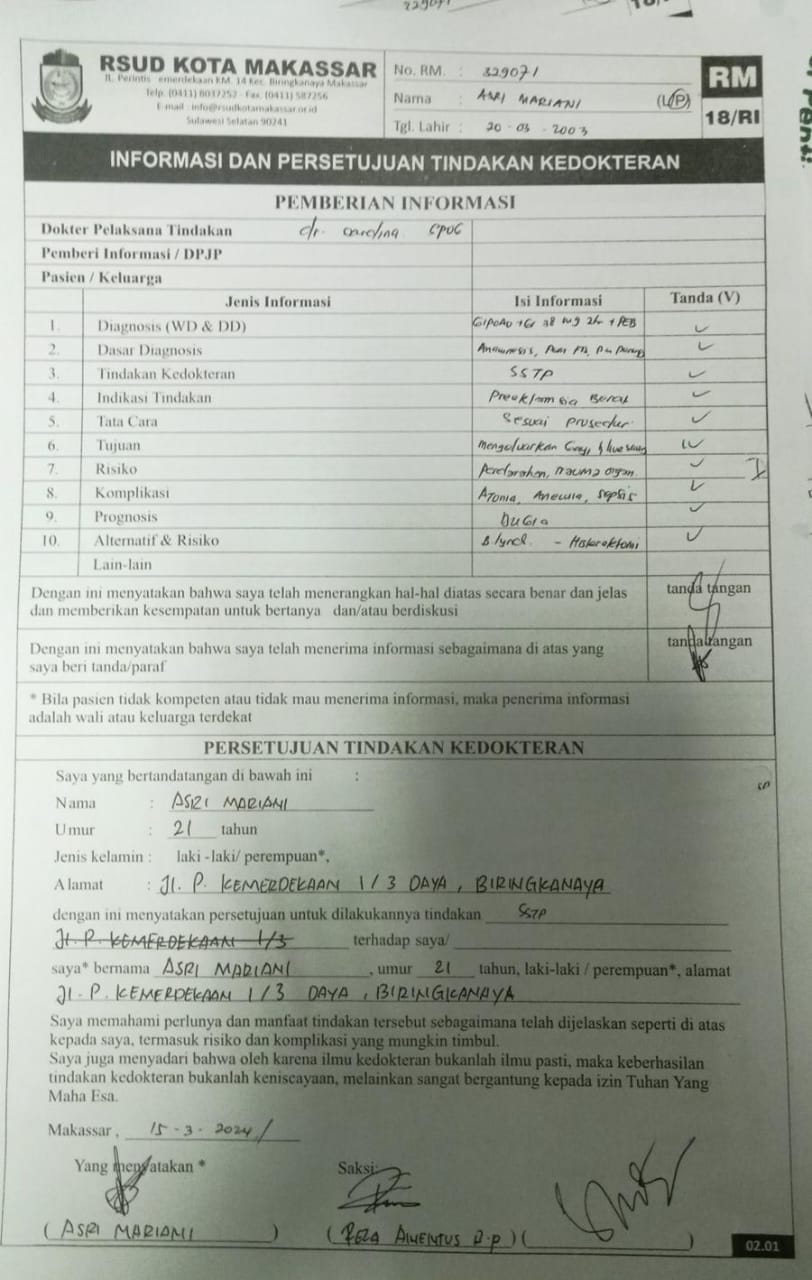 229071
RSUD KOTA MAKASSAR
Jl. Perintis emerdekaan KM. 14 Kec. Biringkanaya Makassar
Telp. (0411) 8037252 - Fax. (0411) 587256
E-mail : info@rsudkotamakassar.or.id
Sulawesi Selatan 90241
No. RM. : 329071
Nama : ASRI MARIANI (L/P)
Tgl. Lahir : 20 - 03 - 2003
RM
18/RI
INFORMASI DAN PERSETUJUAN TINDAKAN KEDOKTERAN
PEMBERIAN INFORMASI
Dokter Pelaksana Tindakan dr.
Pemberi Informasi / DPJP
Pasien / Keluarga
Jenis Informasi Isi Informasi Tanda (V)
1. Diagnosis (WD & DD) + PEB
2. Dasar Diagnosis Anamnesis,
3. Tindakan Kedokteran SSTP
4. Indikasi Tindakan Preeklamsia Berat
5. Tata Cara Sesuai prosedur
6. Tujuan Mengeluarkan
7. Risiko Perdarahan, trauma organ
8. Komplikasi Atonia, Anemia, Sepsis
9. Prognosis
10. Alternatif & Risiko B lynch - Histerektomi
Lain-lain
Dengan ini menyatakan bahwa saya telah menerangkan hal-hal diatas secara benar dan jelas
dan memberikan kesempatan untuk bertanya dan/atau berdiskusi
tanda tangan
Dengan ini menyatakan bahwa saya telah menerima informasi sebagaimana di atas yang
saya beri tanda/paraf
tanda tangan
* Bila pasien tidak kompeten atau tidak mau menerima informasi, maka penerima informasi
adalah wali atau keluarga terdekat
PERSETUJUAN TINDAKAN KEDOKTERAN
Saya yang bertandatangan di bawah ini :
Nama : ASRI MARIANI
Umur : 21 tahun
Jenis kelamin : laki -laki/ perempuan*,
Alamat : Jl. P. KEMERDEKAAN 1/3 DAYA, BIRINGKANAYA
dengan ini menyatakan persetujuan untuk dilakukannya tindakan SSTP
Jl. P. KEMERDEKAAN 1/3 terhadap saya/
saya* bernama ASRI MARIANI, umur 21 tahun, laki-laki / perempuan*, alamat
Jl. P. KEMERDEKAAN 1/3 DAYA, BIRINGKANAYA
Saya memahami perlunya dan manfaat tindakan tersebut sebagaimana telah dijelaskan seperti di atas
kepada saya, termasuk risiko dan komplikasi yang mungkin timbul.
Saya juga menyadari bahwa oleh karena ilmu kedokteran bukanlah ilmu pasti, maka keberhasilan
tindakan kedokteran bukanlah keniscayaan, melainkan sangat bergantung kepada izin Tuhan Yang
Maha Esa.
Makassar, 15 - 3 - 2024/
Yang menyatakan * Saksi:
(ASRI MARIANI) (REZA) ( )
02.01